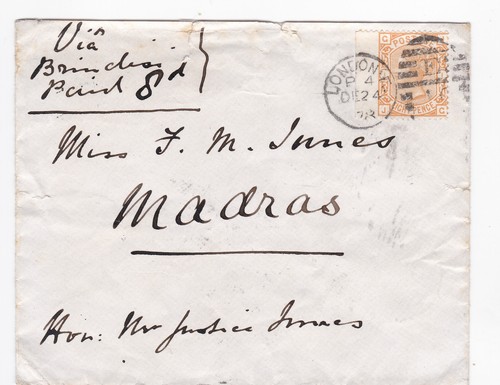 Via
Brindisi
Paid 8d
LONDON
P 4
DE 24
78
POSTAGE
EIGHT PENCE
Miss F. M. Innes
Madras
Hon: Mr Justice Innes